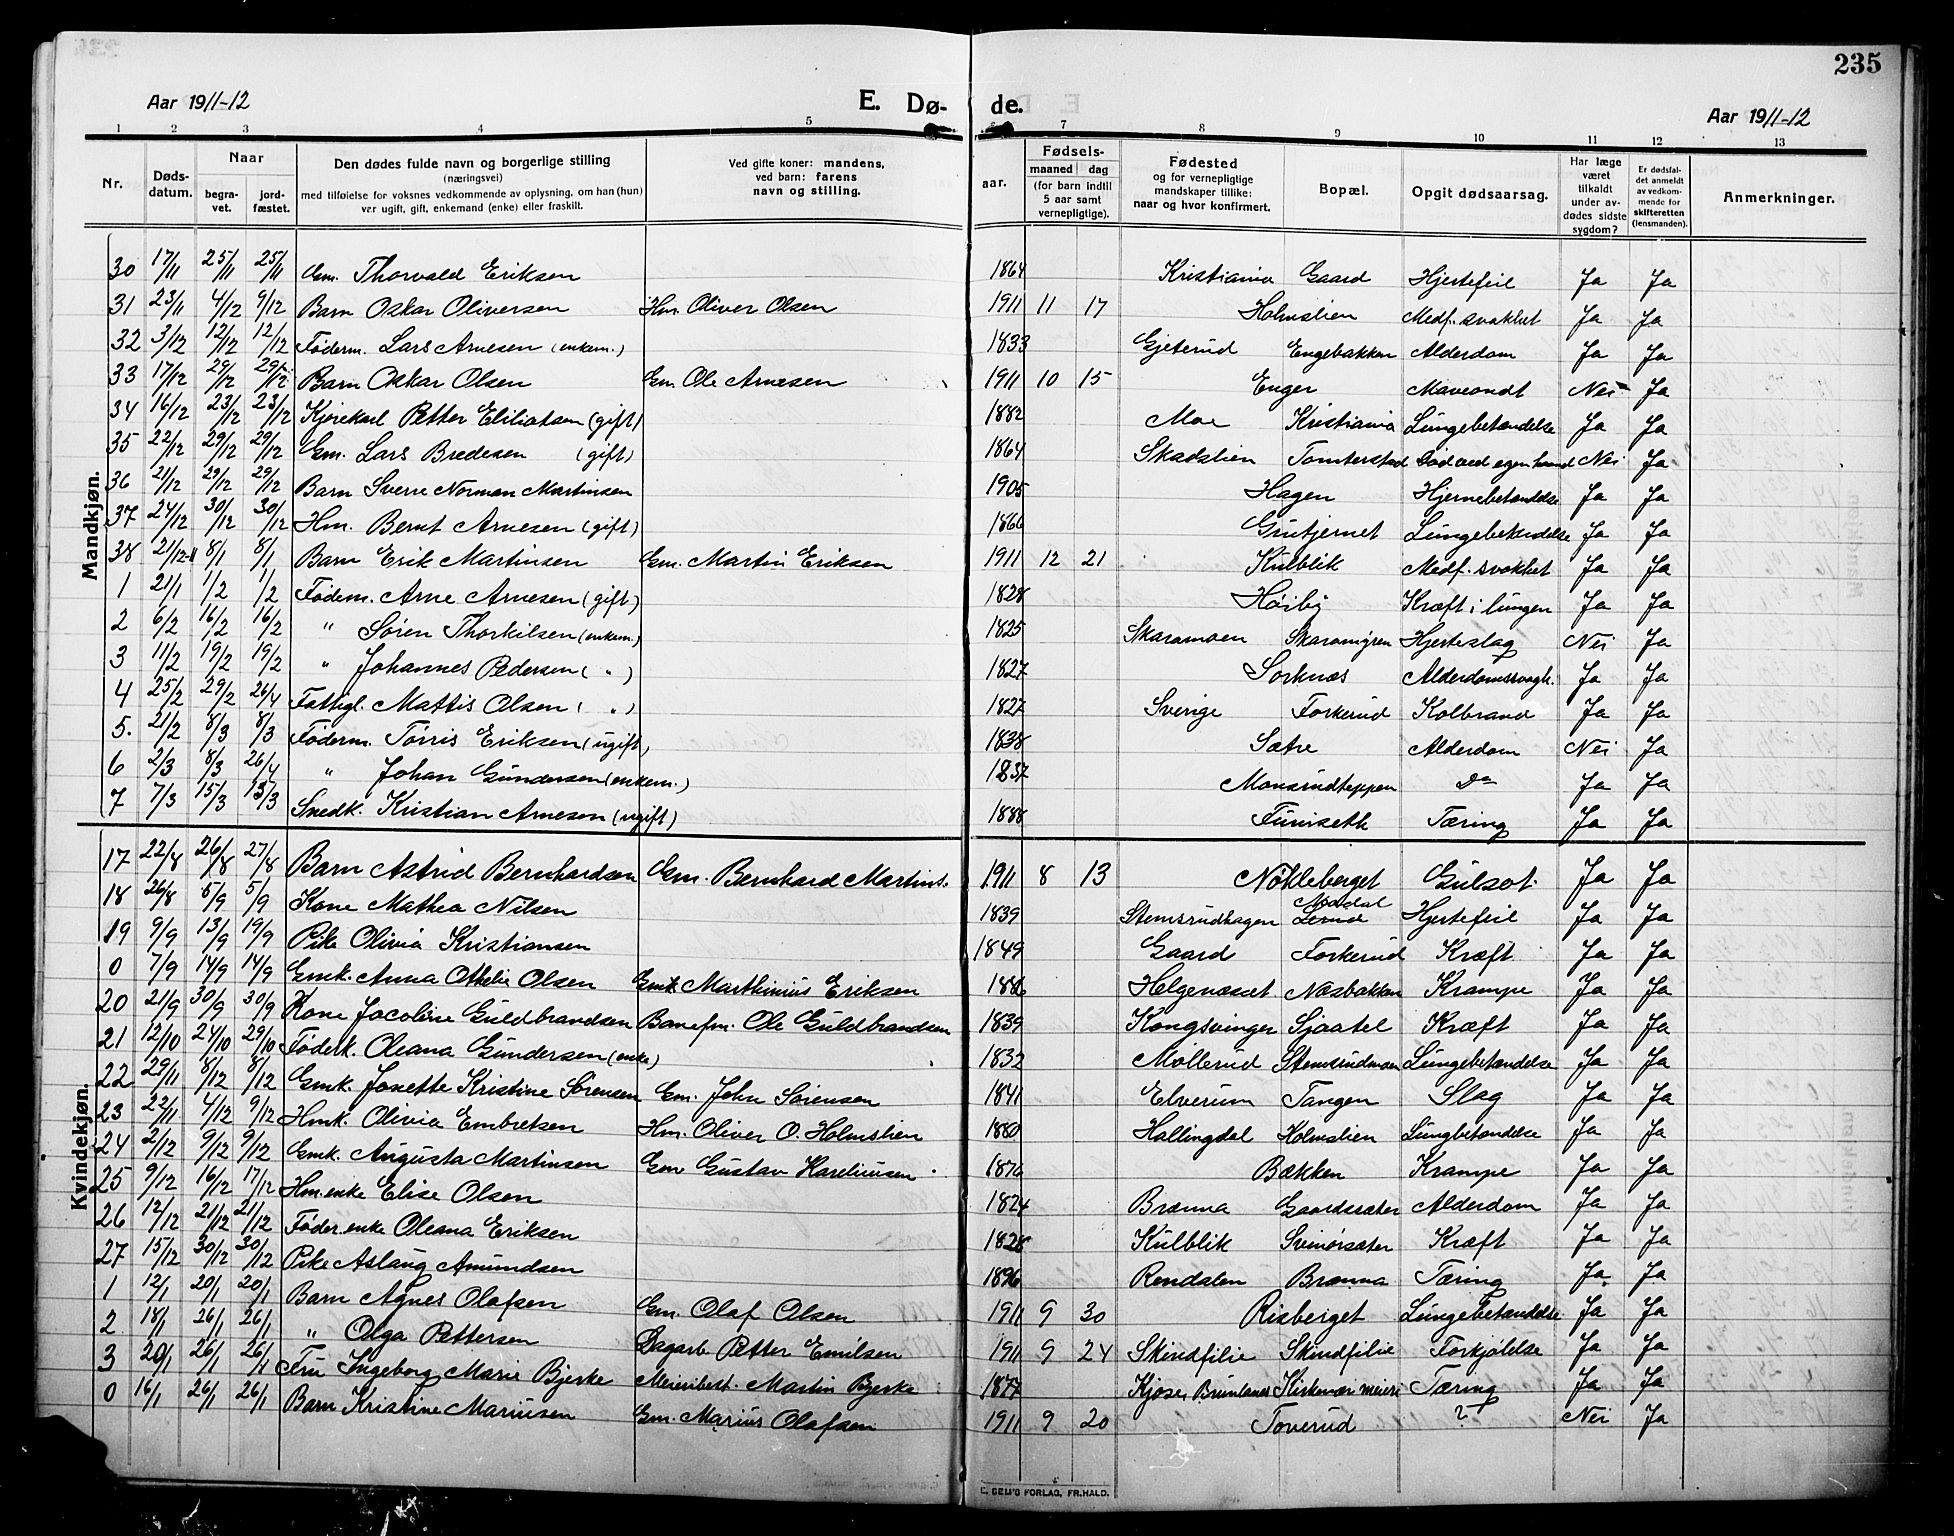 235
Aar 1911-12 E. Dø- de. Aar 1911-12
1 2 3 4 5 7 8 9 10 11 12 13
Nr. Døds-datum. Naar begra-vet. jord-fæstet. Den dødes fulde navn og borgerlige stilling (næringsvei) med tilføielse for voksnes vedkommende av oplysning, om han (hun) var ugift, gift, enkemand (enke) eller fraskilt. Ved gifte koner: mandens, ved barn: farens navn og stilling. aar. Fødsels- maaned dag (for barn indtil 5 aar samt vernepligtige). Fødested og for vernepligtige mandskaper tillike: naar og hvor konfirmert. Bopæl. Opgit dødsaarsag. Har læge været tilkaldt under av-dødes sidste sygdom? Er dødsfal-det anmeldt av vedkom-mende for skifteretten (lensmanden). Anmerkninger.
Mandkjøn.
30 17/11 25/11 25/11 Gm. Thorvald Eriksen 1864 Kristiania Gaard Hjertefeil Ja Ja
31 23/11 4/12 9/12 Barn Oskar Oliversen Hm. Oliver Olsen 1911 11 17 Holmslien Medf. svakhet Ja Ja
32 3/12 12/12 12/12 Føderm. Lars Arnesen (enkem.) 1833 Gjeterud Engebakken Alderdom Ja Ja
33 17/12 29/12 29/12 Barn Oskar Olsen Gm. Ole Arnesen 1911 10 15 Enger Maveondt Nei Ja
34 16/12 23/12 23/12 Kjørekarl Petter (gift) 1882 Moe Kristiania Lungebetændelse Ja Ja
35 22/12 29/12 29/12 Gm. Lars Bredesen (gift) 1864 Skadslien Tomterstad Død ved egen haand Nei Ja
36 21/12 29/12 29/12 Barn Sverre Norman Martinsen 1905 Hagen Hjernebetændelse Ja Ja
37 24/12 30/12 30/12 Hm. Bernt Arnesen (gift) 1866 Gruetjernet Lungebetændelse Ja Ja
38 21/12-11 8/1 8/1 Barn Erik Martinsen Gm. Martin Eriksen 1911 12 21 Kulblik Medf. svakhet Ja Ja
1 21/1 1/2 1/2 Føderm. Arne Arnesen (gift) 1828 Høiby Kræft i lungen Ja Ja
2 6/2 16/2 16/2 " Søren Thorkilsen (enkem.) 1825 Skaramoen Skaramyren Hjerteslag Nei Ja
3 11/2 19/2 19/2 " Johannes Pedersen ( " ) 1827 Sorknæs Alderdomssvagh. Ja Ja
4 25/2 29/2 26/4 Fattigl. Mattis Olsen ( " ) 1827 Sverige Forkerud Kolbrand Ja Ja
5. 21/2 8/3 8/3 Føderm. Tørris Eriksen (ugift) 1838 Sætre Alderdom Nei Ja
6 2/3 8/3 26/4 " Johan Gundersen (enkem.) 1837 Monsrudteppen Do Ja Ja
7 7/3 15/3 15/3 Snedk. Kristian Arnesen (ugift) 1888 Funiseth Tæring Ja Ja
Kvindekjøn.
17 22/8 26/8 27/8 Barn Astrid Bernhardsen Gm. Bernhard Martins. 1911 8 13 Nøkleberget Gulsot. Ja Ja
18 26/8 5/9 5/9 Kone Mathea Nilsen 1839 Stemsrudhagen Hjertefeil Ja Ja
19 9/9 13/9 19/9 Pike Olivia Kristiansen 1849 Gaard Forkerud Kræft Ja Ja
0 7/9 14/9 14/9 Gmk. Anna Othelie Olsen Gmk. Marthinius Eriksen 1886 Helgenæset Næsbakken Krampe Ja Ja
20 21/9 30/9 30/9 Kone Jacobine Guldbrandsen Banefm. Ole Guldbrandsen 1839 Kongsvinger Sjaatel Kræft Ja Ja
21 12/10 24/10 29/10 Føderk. Oleana Gundersen (enke) 1832 Møllerud Stemsrudmoen Lungebetændelse Ja Ja
22 29/11 8/12 8/12 Gmk. Jonette Kristine Sørensen Gm. John Sørensen 1841 Elverum Tangen Slag Ja Ja
23 22/11 4/12 9/12 Hmk. Olivia Embretsen Hm. Oliver O. Holmslien 1880 Hallingdal Holmslien Lungbetændelse Ja Ja
24 2/12 9/12 9/12 Gmk. Augusta Martinsen Gm Gustav Kareliussen 1876 Bækken Krampe Ja Ja
25 9/12 16/12 17/12 Hm.enke Elise Olsen 1824 Brænna Gaardsæter Alderdom Ja Ja
26 12/12 21/12 21/12 Føder.enke Oleana Eriksen 1828 Kulblik Svinørsæter Kræft Ja Ja
27 15/12 30/12 30/12 Pike Aslaug Amundsen 1896 Rendalen Brænna Tæring Ja Ja
1 12/1 20/1 20/1 Barn Agnes Olafsen Gm Olaf Olsen 1911 9 30 Risberget Lungebetændelse Ja Ja
2 18/1 26/1 26/1 " Olga Pettersen Dagarb Petter Emilsen 1911 9 24 Skindfilie Skindfilie Forkjølelse Ja Ja
3 20/1 26/1 26/1 Fru Ingeborg Marie Bjerke Meieribest. Martin Bjerke 1877 Kjøse, Brunlanæs Kirkenær meieri Tæring Ja Ja
0 16/1 26/1 26/1 Barn Kristine Mariusen Gm. Marius Olafsen 1911 9 20 Toverud ? Nei Ja
E. SEM'S FORLAG, FR.HALD.